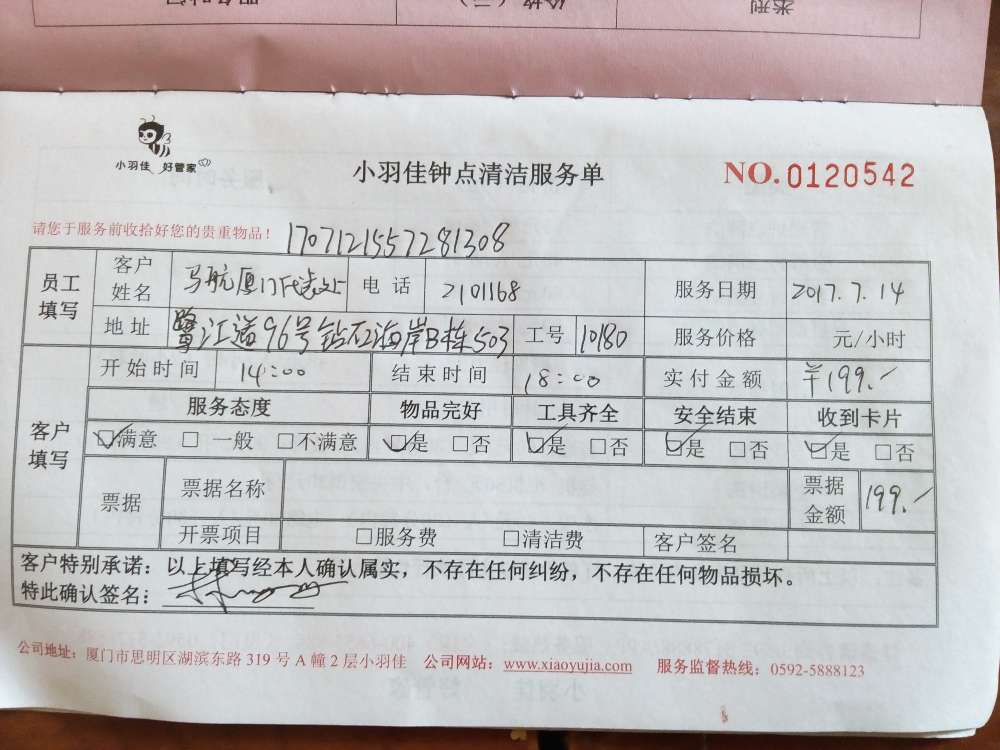 服务时间 价格（元） 类别
小羽佳 好管家
小羽佳钟点清洁服务单
NO.0120542
请您于服务前收拾好您的贵重物品！ 1707121557281308
员工填写 客户姓名 马航厦门代表处 电话 2101168 服务日期 2017.7.14
地址 鹭江道96号钻石海岸B栋503 工号 10180 服务价格 元/小时
客户填写 开始时间 14:00 结束时间 18:00 实付金额 ￥199.
服务态度 物品完好 工具齐全 安全结束 收到卡片
☑满意 □一般 □不满意 ☑是 □否 ☑是 □否 ☑是 □否 ☑是 □否
票据 票据名称 票据金额 199.
开票项目 □服务费 □清洁费 客户签名
客户特别承诺：以上填写经本人确认属实，不存在任何纠纷，不存在任何物品损坏。
特此确认签名：
公司地址：厦门市思明区湖滨东路 319 号 A 幢 2 层小羽佳 公司网站：www.xiaoyujia.com 服务监督热线：0592-5888123